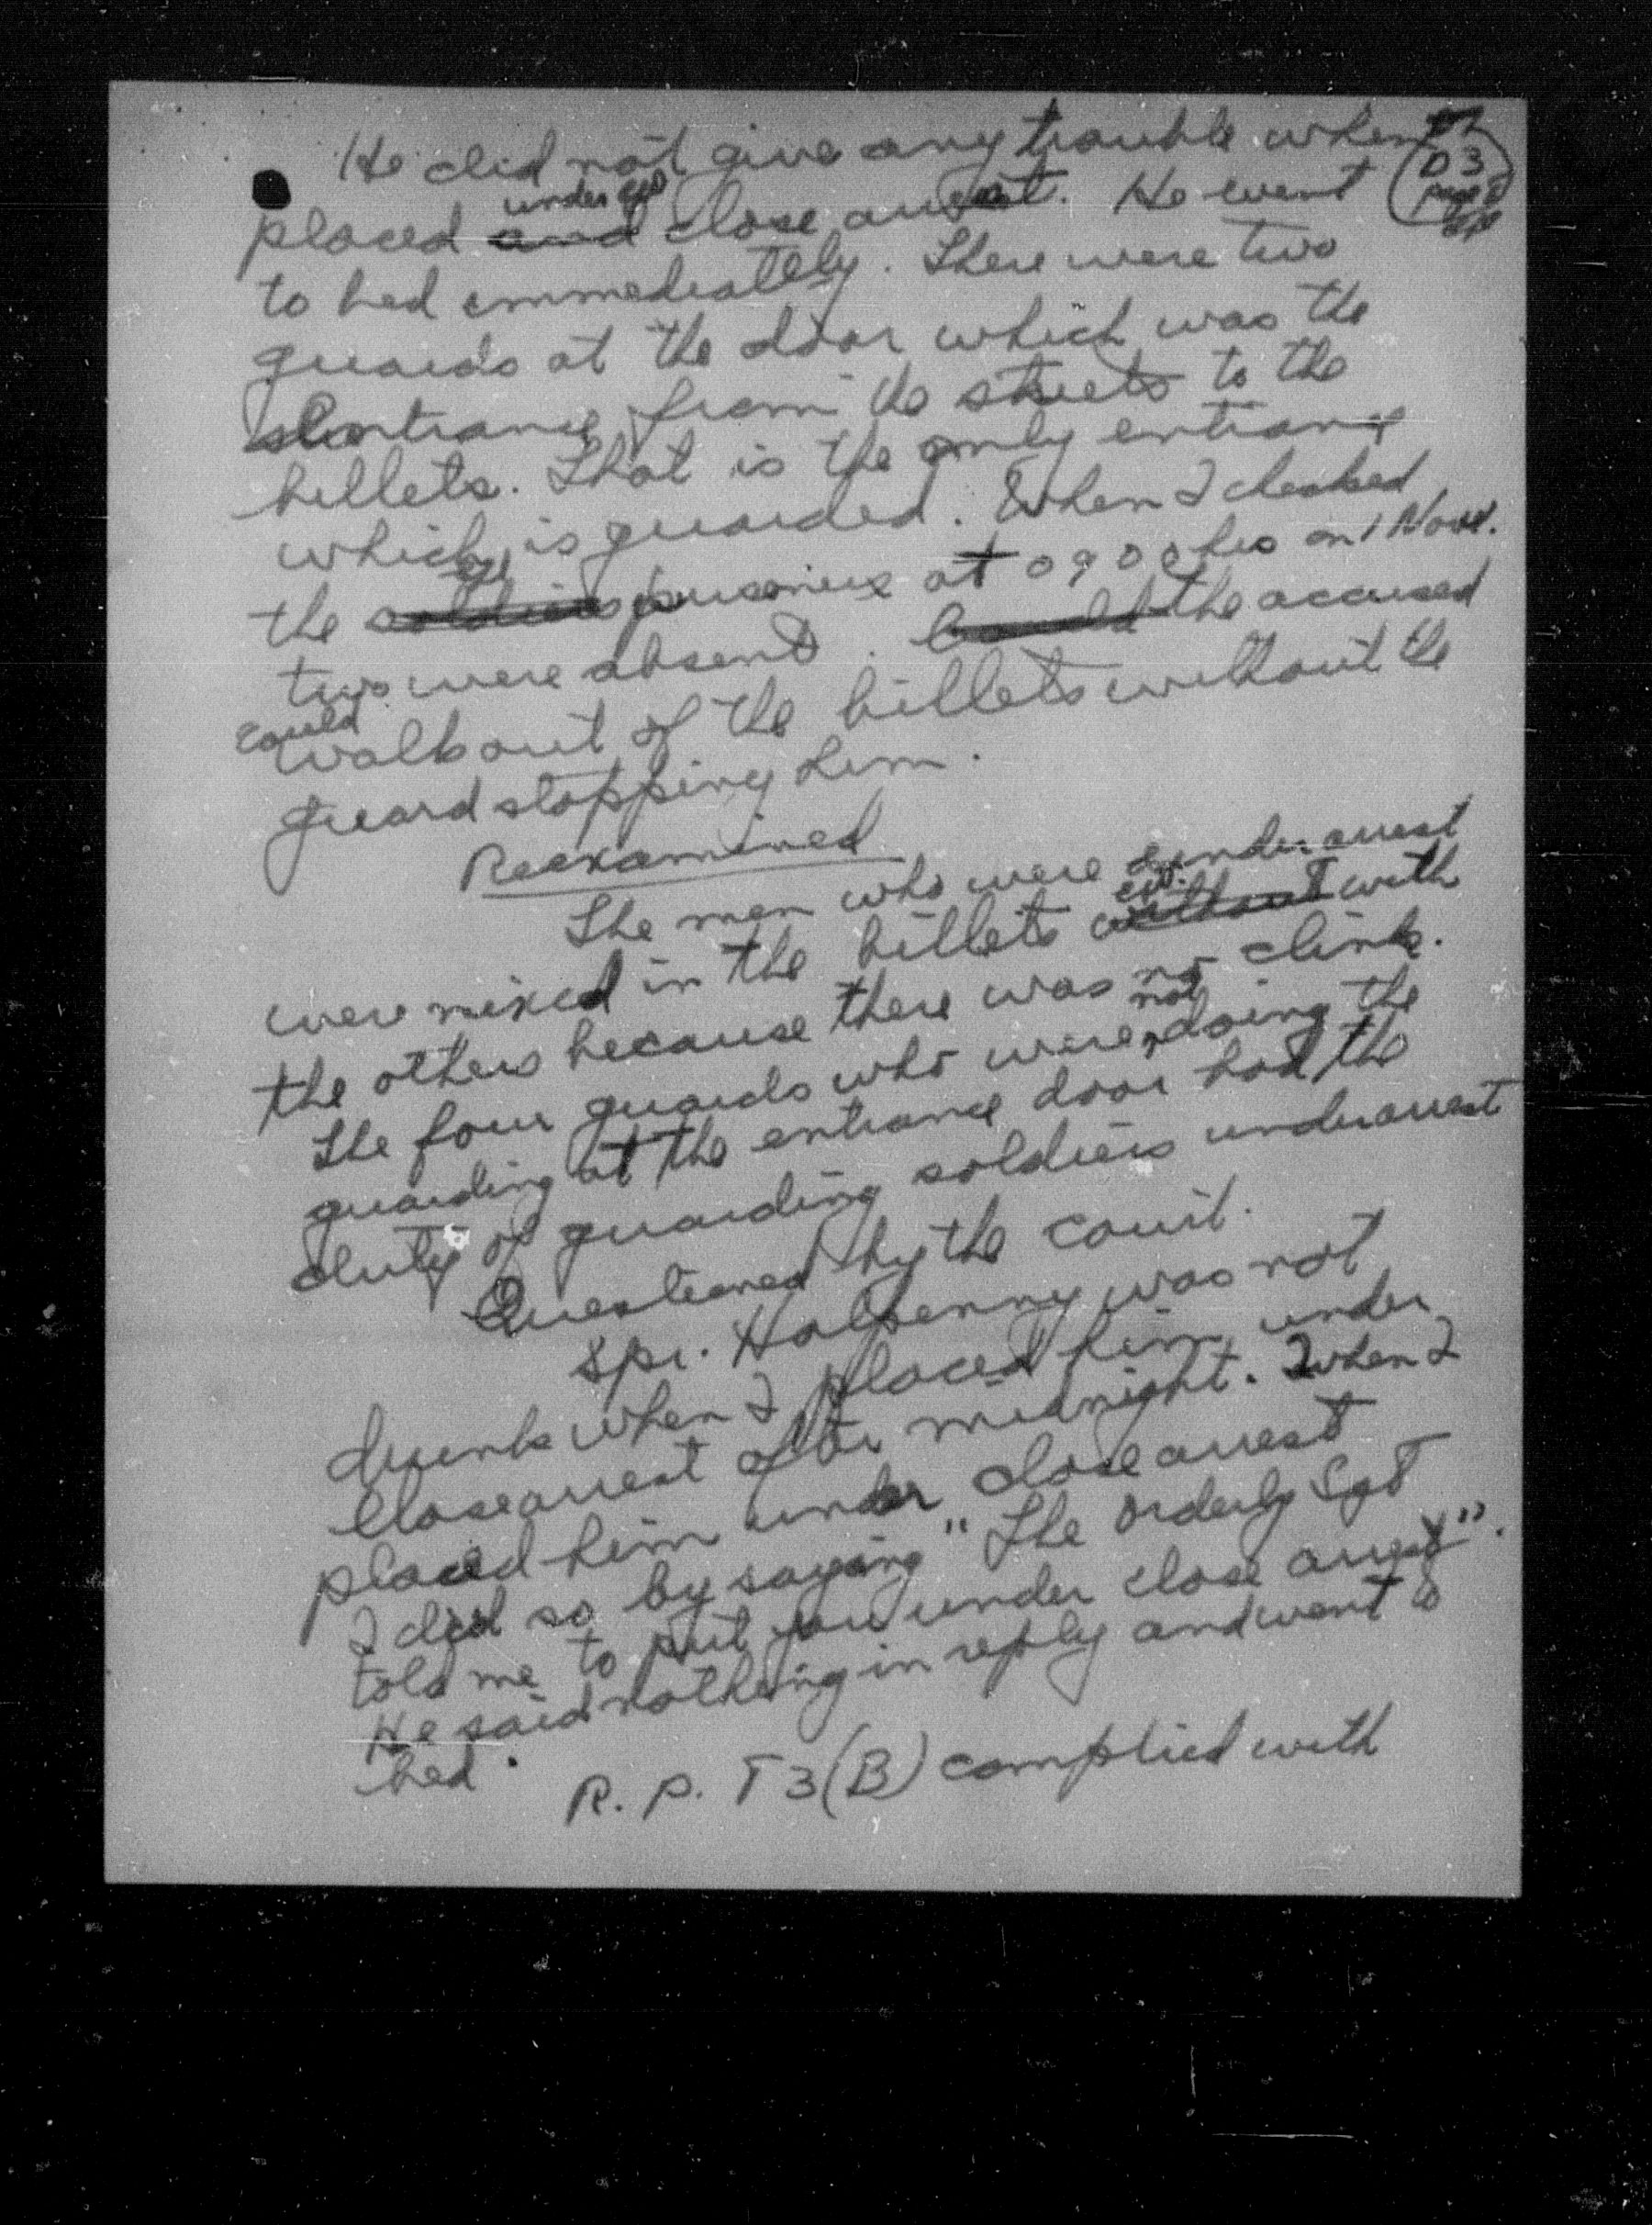 He did not give any trouble when
D3
page 8
under
placed and close arrest. He went
to bed immediately. There were two
guards at the door which was the
entrance from the streets to the
billets. That is the only entrance
which is guarded. When I checked
the soldiers prisoners at 0900 hrs on 1 Nov.
two were absent. Could the accused
could
walk out of the billets without the
guard stopping him.
Reexamined
The men who were under arrest
were mixed in the billets without with
the others because there was no clink.
not
The four guards who were doing the
guarding at the entrance door had the
duty of guarding soldiers under arrest
Questioned by the court.
Spr. Halpenny was not
drunk when I placed him under
close arrest after midnight. When I
placed him under close arrest
I did so by saying "The Orderly Sgt
told me to put you under close arrest".
He said nothing in reply and went to
bed.
R. P. 83(B) complied with